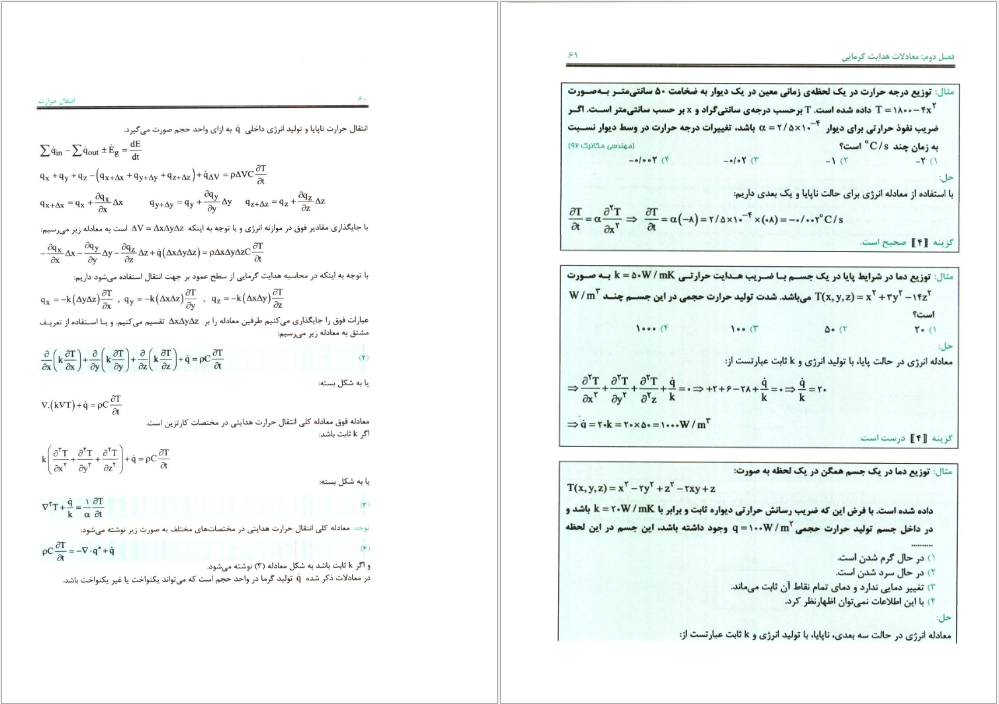 انتقال حرارت ۶۰
انتقال حرارت ناپایا و تولید انرژی داخلی q̇ به ازای واحد حجم صورت می‌گیرد.
∑q̇in − ∑q̇out ± Ėg = dE/dt
qx + qy + qz − (qx+Δx + qy+Δy + qz+Δz) + q̇ΔV = ρΔVC ∂T/∂t
qx+Δx = qx + ∂qx/∂x Δx    qy+Δy = qy + ∂qy/∂y Δy    qz+Δz = qz + ∂qz/∂z Δz
با جایگذاری مقادیر فوق در موازنه انرژی و با توجه به اینکه ΔV = ΔxΔyΔz است به معادله زیر می‌رسیم:
−∂qx/∂x Δx − ∂qy/∂y Δy − ∂qz/∂z Δz + q̇(ΔxΔyΔz) = ρΔxΔyΔzC ∂T/∂t
با توجه به اینکه در محاسبه هدایت گرمایی از سطح عمود بر جهت انتقال استفاده می‌شود داریم:
qx = −k(ΔyΔz) ∂T/∂x , qy = −k(ΔxΔz) ∂T/∂y , qz = −k(ΔxΔy) ∂T/∂z
عبارات فوق را جایگذاری می‌کنیم طرفین معادله را بر ΔxΔyΔz تقسیم می‌کنیم. و با استفاده از تعریف
مشتق به معادله زیر می‌رسیم:
∂/∂x (k ∂T/∂x) + ∂/∂y (k ∂T/∂y) + ∂/∂z (k ∂T/∂z) + q̇ = ρC ∂T/∂t (۲)
یا به شکل بسته:
∇.(k∇T) + q̇ = ρC ∂T/∂t
معادله فوق معادله کلی انتقال حرارت هدایتی در مختصات کارتزین است.
اگر k ثابت باشد:
k(∂²T/∂x² + ∂²T/∂y² + ∂²T/∂z²) + q̇ = ρC ∂T/∂t
یا به شکل بسته:
∇²T + q̇/k = ۱/α ∂T/∂t (۳)
توجه: معادله کلی انتقال حرارت هدایتی در مختصات‌های مختلف به صورت زیر نوشته می‌شود:
ρC ∂T/∂t = −∇·q″ + q̇ (۴)
و اگر k ثابت باشد به شکل معادله (۳) نوشته می‌شود.
در معادلات ذکر شده q̇ تولید گرما در واحد حجم است که می‌تواند یکنواخت یا غیر یکنواخت باشد.
فصل دوم: معادلات هدایت گرمایی ۶۱
مثال: توزیع درجه حرارت در یک لحظه‌ی زمانی معین در یک دیوار به ضخامت ۵۰ سانتی‌متر به‌صورت
T = ۱۸۰۰ − ۴x² داده شده است. T برحسب درجه‌ی سانتی‌گراد و x بر حسب سانتی‌متر است. اگر
ضریب نفوذ حرارتی برای دیوار α = ۲/۵×۱۰⁻⁴ باشد، تغییرات درجه حرارت در وسط دیوار نسبت
به زمان چند °C/s است؟ (مهندسی مکانیک ۹۶)
۱) ۲− ۲) ۱− ۳) ۰/۰۲− ۴) ۰/۰۰۲−
حل:
با استفاده از معادله انرژی برای حالت ناپایا و یک بعدی داریم:
∂T/∂t = α ∂²T/∂x² ⇒ ∂T/∂t = α(−۸) = ۲/۵×۱۰⁻⁴×(۰۸) = −۰/۰۰۲°C/s
گزینه [۴] صحیح است.
مثال: توزیع دما در شرایط پایا در یک جسم با ضریب هدایت حرارتی k = ۵۰W/mK به صورت
T(x,y,z) = x² + ۳y² − ۱۴z² می‌باشد. شدت تولید حرارت حجمی در این جسم چند W/m³
است؟
۱) ۲۰ ۲) ۵۰ ۳) ۱۰۰ ۴) ۱۰۰۰
حل:
معادله انرژی در حالت پایا، با تولید انرژی و k ثابت عبارتست از:
⇒ ∂²T/∂x² + ∂²T/∂y² + ∂²T/∂²z + q̇/k = ۰ ⇒ +۲+۶−۲۸+ q̇/k = ۰ ⇒ q̇/k = ۲۰
⇒ q̇ = ۲۰k = ۲۰×۵۰ = ۱۰۰۰W/m³
گزینه [۴] درست است.
مثال: توزیع دما در یک جسم همگن در یک لحظه به صورت:
T(x,y,z) = x² − ۲y² + z² − ۲xy + z
داده شده است. با فرض این که ضریب رسانش حرارتی دیواره ثابت و برابر با k = ۲۰W/mK باشد و
در داخل جسم تولید حرارت حجمی q = ۱۰۰W/m³ وجود داشته باشد، این جسم در این لحظه
..........
۱) در حال گرم شدن است.
۲) در حال سرد شدن است.
۳) تغییر دمایی ندارد و دمای تمام نقاط آن ثابت می‌ماند.
۴) با این اطلاعات نمی‌توان اظهارنظر کرد.
حل:
معادله انرژی در حالت سه بعدی، ناپایا، با تولید انرژی و k ثابت عبارتست از: